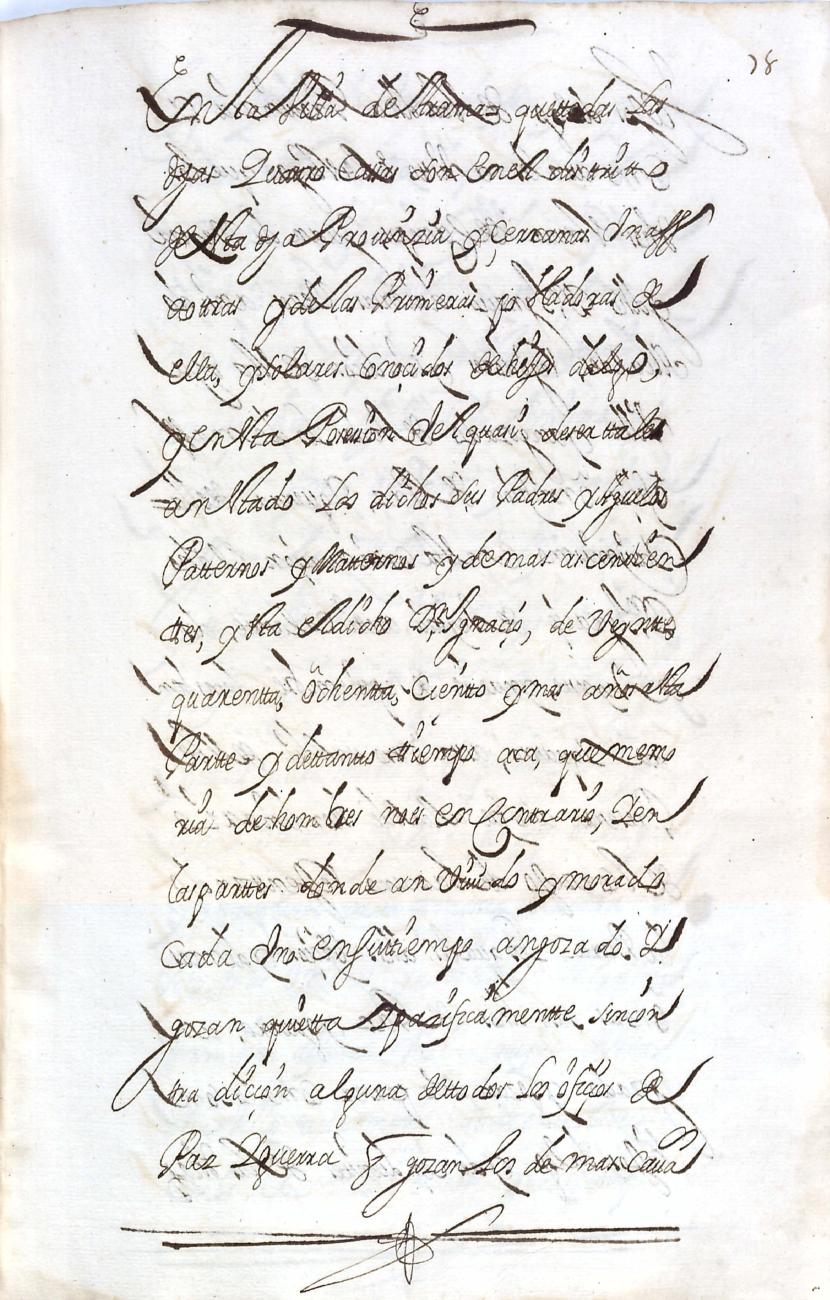 18
En la Villa de que ttodas las
dhas Quatro Casas son en el distritto
de esta dha Provinzia y Cercanas Unas
a ottras y de las Primeras pobladoras de
ella, y solares Conozidos de hijos dalgo,
y en esta Posesion Vel quasi de ser ttales
an estado los dichos sus Padres y Aguelos
Patternos y Matternos y demas ascendien
ttes, y esta el dicho Dn. Ygnacio, de Veyntte,
quarentta, ochentta, Cientto y mas años a esta
Partte y de ttantto ttiempo aca, que memo
ria de hombres no es en Conttrario, Y en
las parttes donde an Viuido y morado
Cada Uno en su ttiempo an gozado Y
gozan quietta Y pazificamentte sin con
tra dicion alguna de ttodos los ofiçios de
Paz Y guerra q gozan los demas Caua